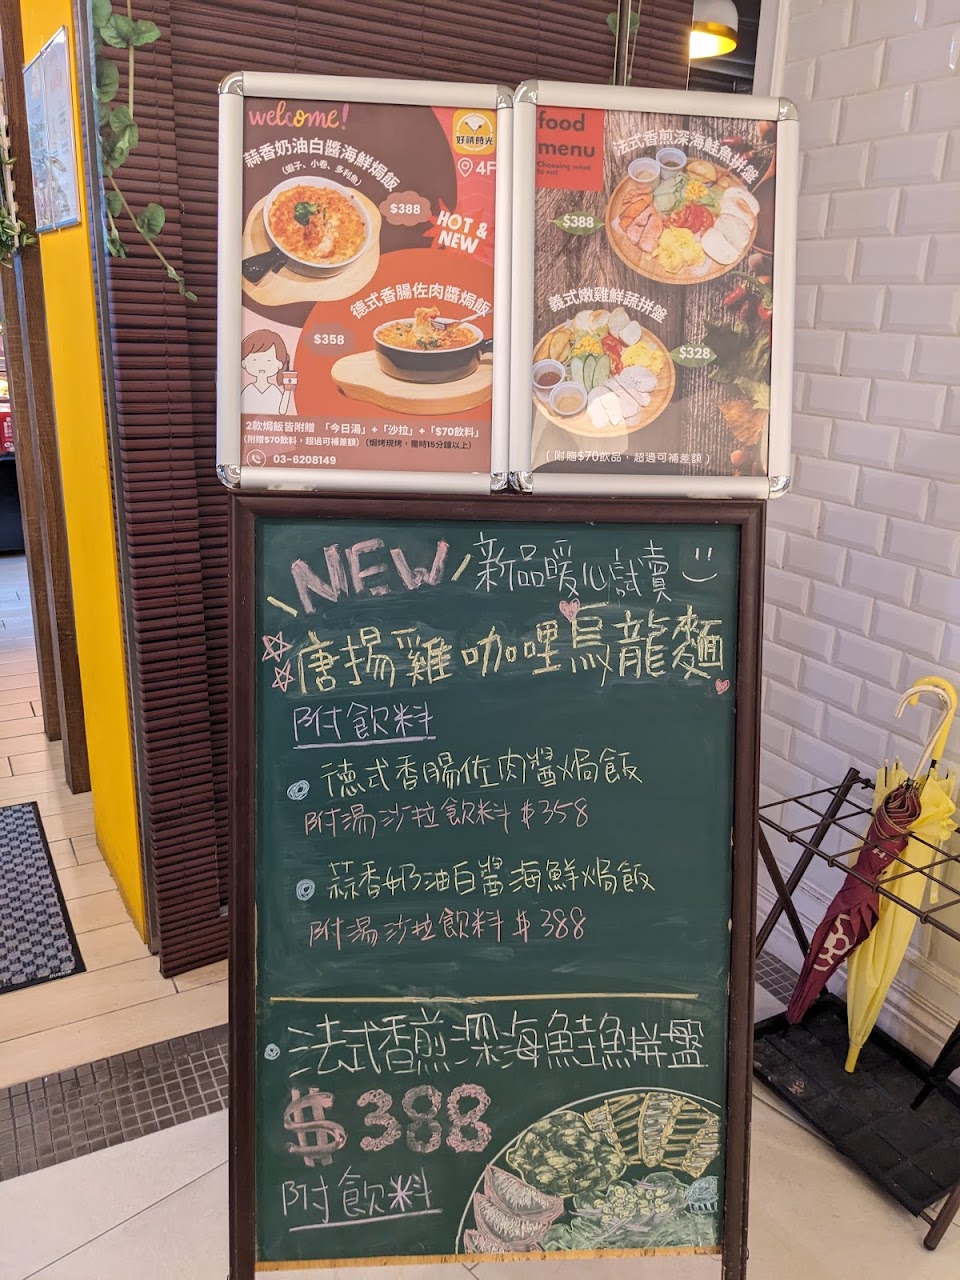 welcome!
好時時光
4F
蒜香奶油白醬海鮮焗飯
(蝦子、小卷、多利魚)
$388
HOT &
NEW
德式香腸佐肉醬焗飯
$358
2款焗飯皆附贈 「今日湯」+「沙拉」+「$70飲料」
(附贈$70飲料，超過可補差額) (焗烤現烤，需時15分鐘以上)
03-6208149
food
menu
Choosing what
to eat
法式香煎深海鮭魚拼盤
$388
義式嫩雞鮮蔬拼盤
$328
( 附贈$70飲品，超過可補差額 )
NEW 新品暖心試賣
唐揚雞咖哩烏龍麵
附飲料
德式香腸佐肉醬焗飯
附湯沙拉飲料$358
蒜香奶油白醬海鮮焗飯
附湯沙拉飲料$388
法式香煎深海鮭魚拼盤
$388
附飲料